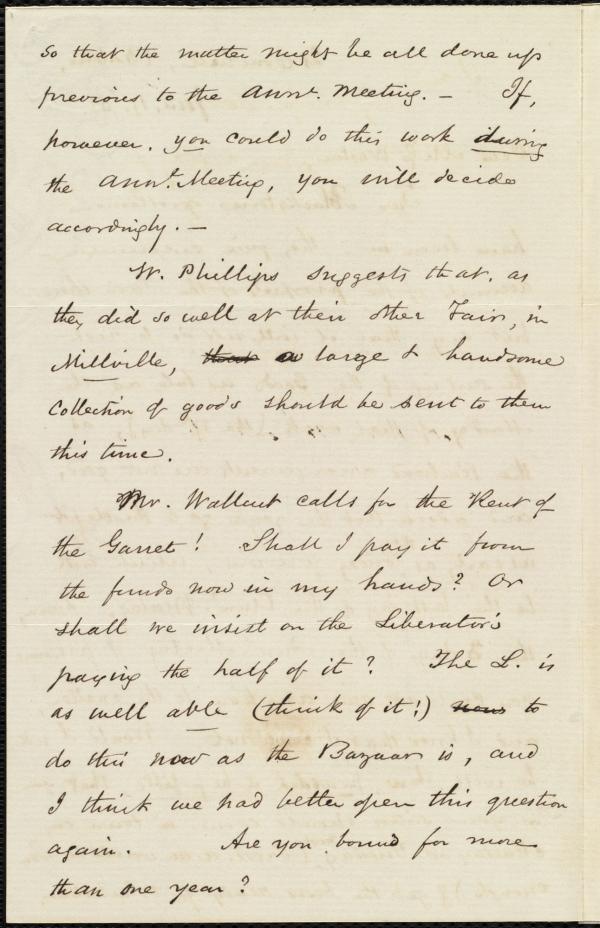 so that the matter might be all done up
previous to the Annl. Meeting. — If,
however, you could do this work during
the Annl. Meeting, you will decide
accordingly. —
W. Phillips suggests that, as
they did so well at their other Fair, in
Millville, that a large & handsome
collection of goods should be sent to them
this time.
Mr. Wallcut calls for the Rent of
the Garret! Shall I pay it from
the funds now in my hands? Or
shall we insist on the Liberator's
paying the half of it? The L. is
as well able (think of it!) now to
do this now as the Bazaar is, and
I think we had better open this question
again. Are you bound for more
than one year?